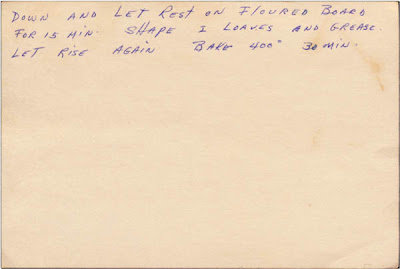 DOWN AND LET REST ON FLOURED BOARD
FOR 15 MIN. SHAPE I LOAVES AND GREASE.
LET RISE AGAIN BAKE 400° 30 MIN.